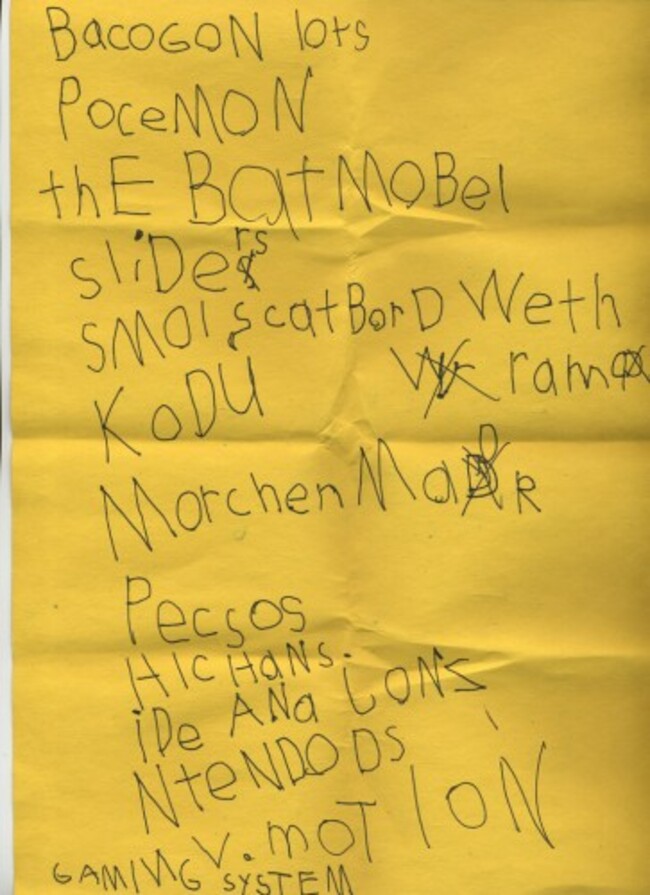 BacoGoN lots
PoceMON
thE BatMoBel
sliDers
SMOl scatBorD Weth
ramo
KoDU
MorchenMaR
Pecsos
HICHANS.
iDe ANa GONS
NteNDODS
V.moTION
GAMING SYSTEM